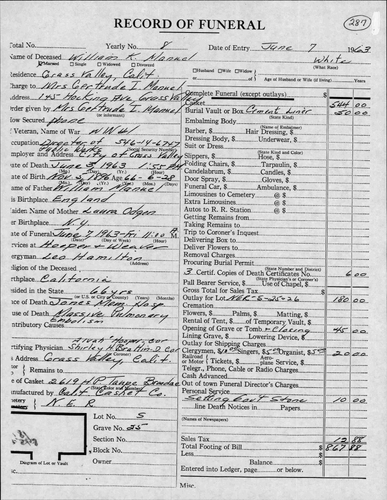 RECORD OF FUNERAL
287
Total No. Yearly No. 8 Date of Entry June 7 1963
Name of Deceased William K. Manuel White
Married Single Widowed Divorced Husband Widow (What Race)
Residence Grass Valley, Calif. Age of Husband or Wife (if living) Years
Charge to Mrs Gertrude I. Manuel Complete Funeral (except outlays) $
Address 145 Hocking Ave, Grass Valley Casket 544 00
Order given by Mrs Gertrude I. Manuel Burial Vault or Box Cement Liner 50 00
(or informant) (State Kind)
How Secured phone Embalming Body
Veteran, Name of War WW I Barber, $ Hair Dressing, $
Occupation Director of 546-14-6747 Dressing Body, $ Underwear, $
Public Works Social Security Number Suit or Dress
Employer and Address City of Grass Valley (State Kind and Color)
Date of Death June 3, 1963 1:55 AM Slippers, $ Hose, $
(Mo.) (Day) (Yr.) (Hour) Folding Chairs, $ Tarpaulin, $
Date of Birth Nov 5, 1896 66-6-28 Candelabrum, $ Candles, $
(Mo.) (Day) (Yr.) (Age) Door Spray, $ Gloves, $
Name of Father William Manuel Funeral Car, $ Ambulance, $
His Birthplace England Limousines to Cemetery @ $
Extra Limousines @ $
Maiden Name of Mother Laura Odgen Autos to R. R. Station @ $
Her Birthplace N.Y. Getting Remains from
Date of Funeral June 7, 1963-Fri. 11:00 AM Taking Remains to
(Mo.) (Day) (Yr.) (Day) (Hour) Trip to Coroner's Inquest
Services at Hooper & Weaver Delivering Box to
Clergyman Leo Hamilton Deliver Flowers to
Religion of the Deceased Removal Charges
Procuring Burial Permit
Birthplace California (State Number and District)
3 Certif. Copies of Death Certificates No. 6 00
Resided in the 66 yrs (State Physician's or Coroner's)
(City or County) (Years) (Months) Pall Bearer Service, $ Use of Chapel, $
Place of Death Jones Mem Hosp Gross Total for Sales Tax $
Cause of Death Massive Pulmonary Outlay for Lot NER-S-25-26 180 00
Embolism Cremation
Contributory Causes Flowers, $ Palms, $ Matting, $
Rental of Tent, $ or Temporary Vault, $
Opening of Grave or Tomb + Closing 45 00
Certifying Physician Lining Grave, $ Lowering Device, $
Outlay for Shipping Charges
His Address Grass Valley, Calif. Clergymen, $ Singers, $ Organist, $ 20 00
Tickets, $ Service, $
Remains to Telegr., Phone, Cable or Radio Charges
Cash Advanced
Size of Casket Out of town Funeral Director's Charges
Manufactured by Calif. Casket Co. Personal Service
Cemetery N.E.R. Setting Govt Stone 10 00
line Death Notices in Papers
Lot No. S (Names of Newspapers)
Grave No. 25
Section No. Sales Tax 12 88
Block No. Total Footing of Bill $ 867 88
Owner Less $
Balance $
Diagram of Lot or Vault Entered into Ledger, page or below.
Misc.